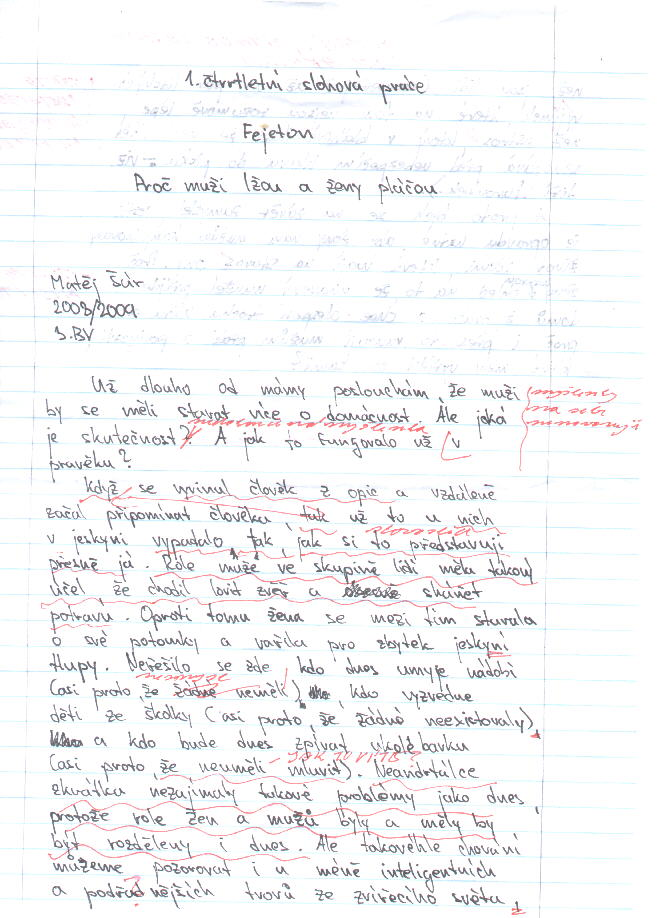 1. čtvrtletní slohová práce
Fejeton
Proč muži lžou a ženy pláčou
Matěj Šúr
2008/2009
3.BV
Už dlouho od mámy poslouchám, že muži
by se měli starat více o domácnost. Ale jaká
je skutečnost? A jak to fungovalo už v
pravěku?
Když se vyvinul člověk z opic a vzdáleně
začal připomínat člověka, tak už to u nich
v jeskyni vypadalo tak, jak si to představuji
přesně já. Role muže ve skupině lidí měla takový
účel, že chodil lovit zvěř a shánět
potravu. Oproti tomu žena se mezi tím starala
o své potomky a vařila pro zbytek jeskyní
tlupy. Neřešilo se zde, kdo dnes umyje nádobí
(asi proto, že žádné neměli), kdo vyzvedne
děti ze školky (asi proto, že žádné neexistovaly)
a kdo bude dnes zpívat ukolébavku
(asi proto, že neuměli mluvit). - JAK TO VÍTE?
Neandrtálce
zkrátka nezajímaly takové problémy jako dnes,
protože role žen a mužů byly a měly by
být rozděleny i dnes. Ale takovéhle chování
můžeme pozorovat i u méně inteligentních
a podřadnějších tvorů ze zvířecího světa